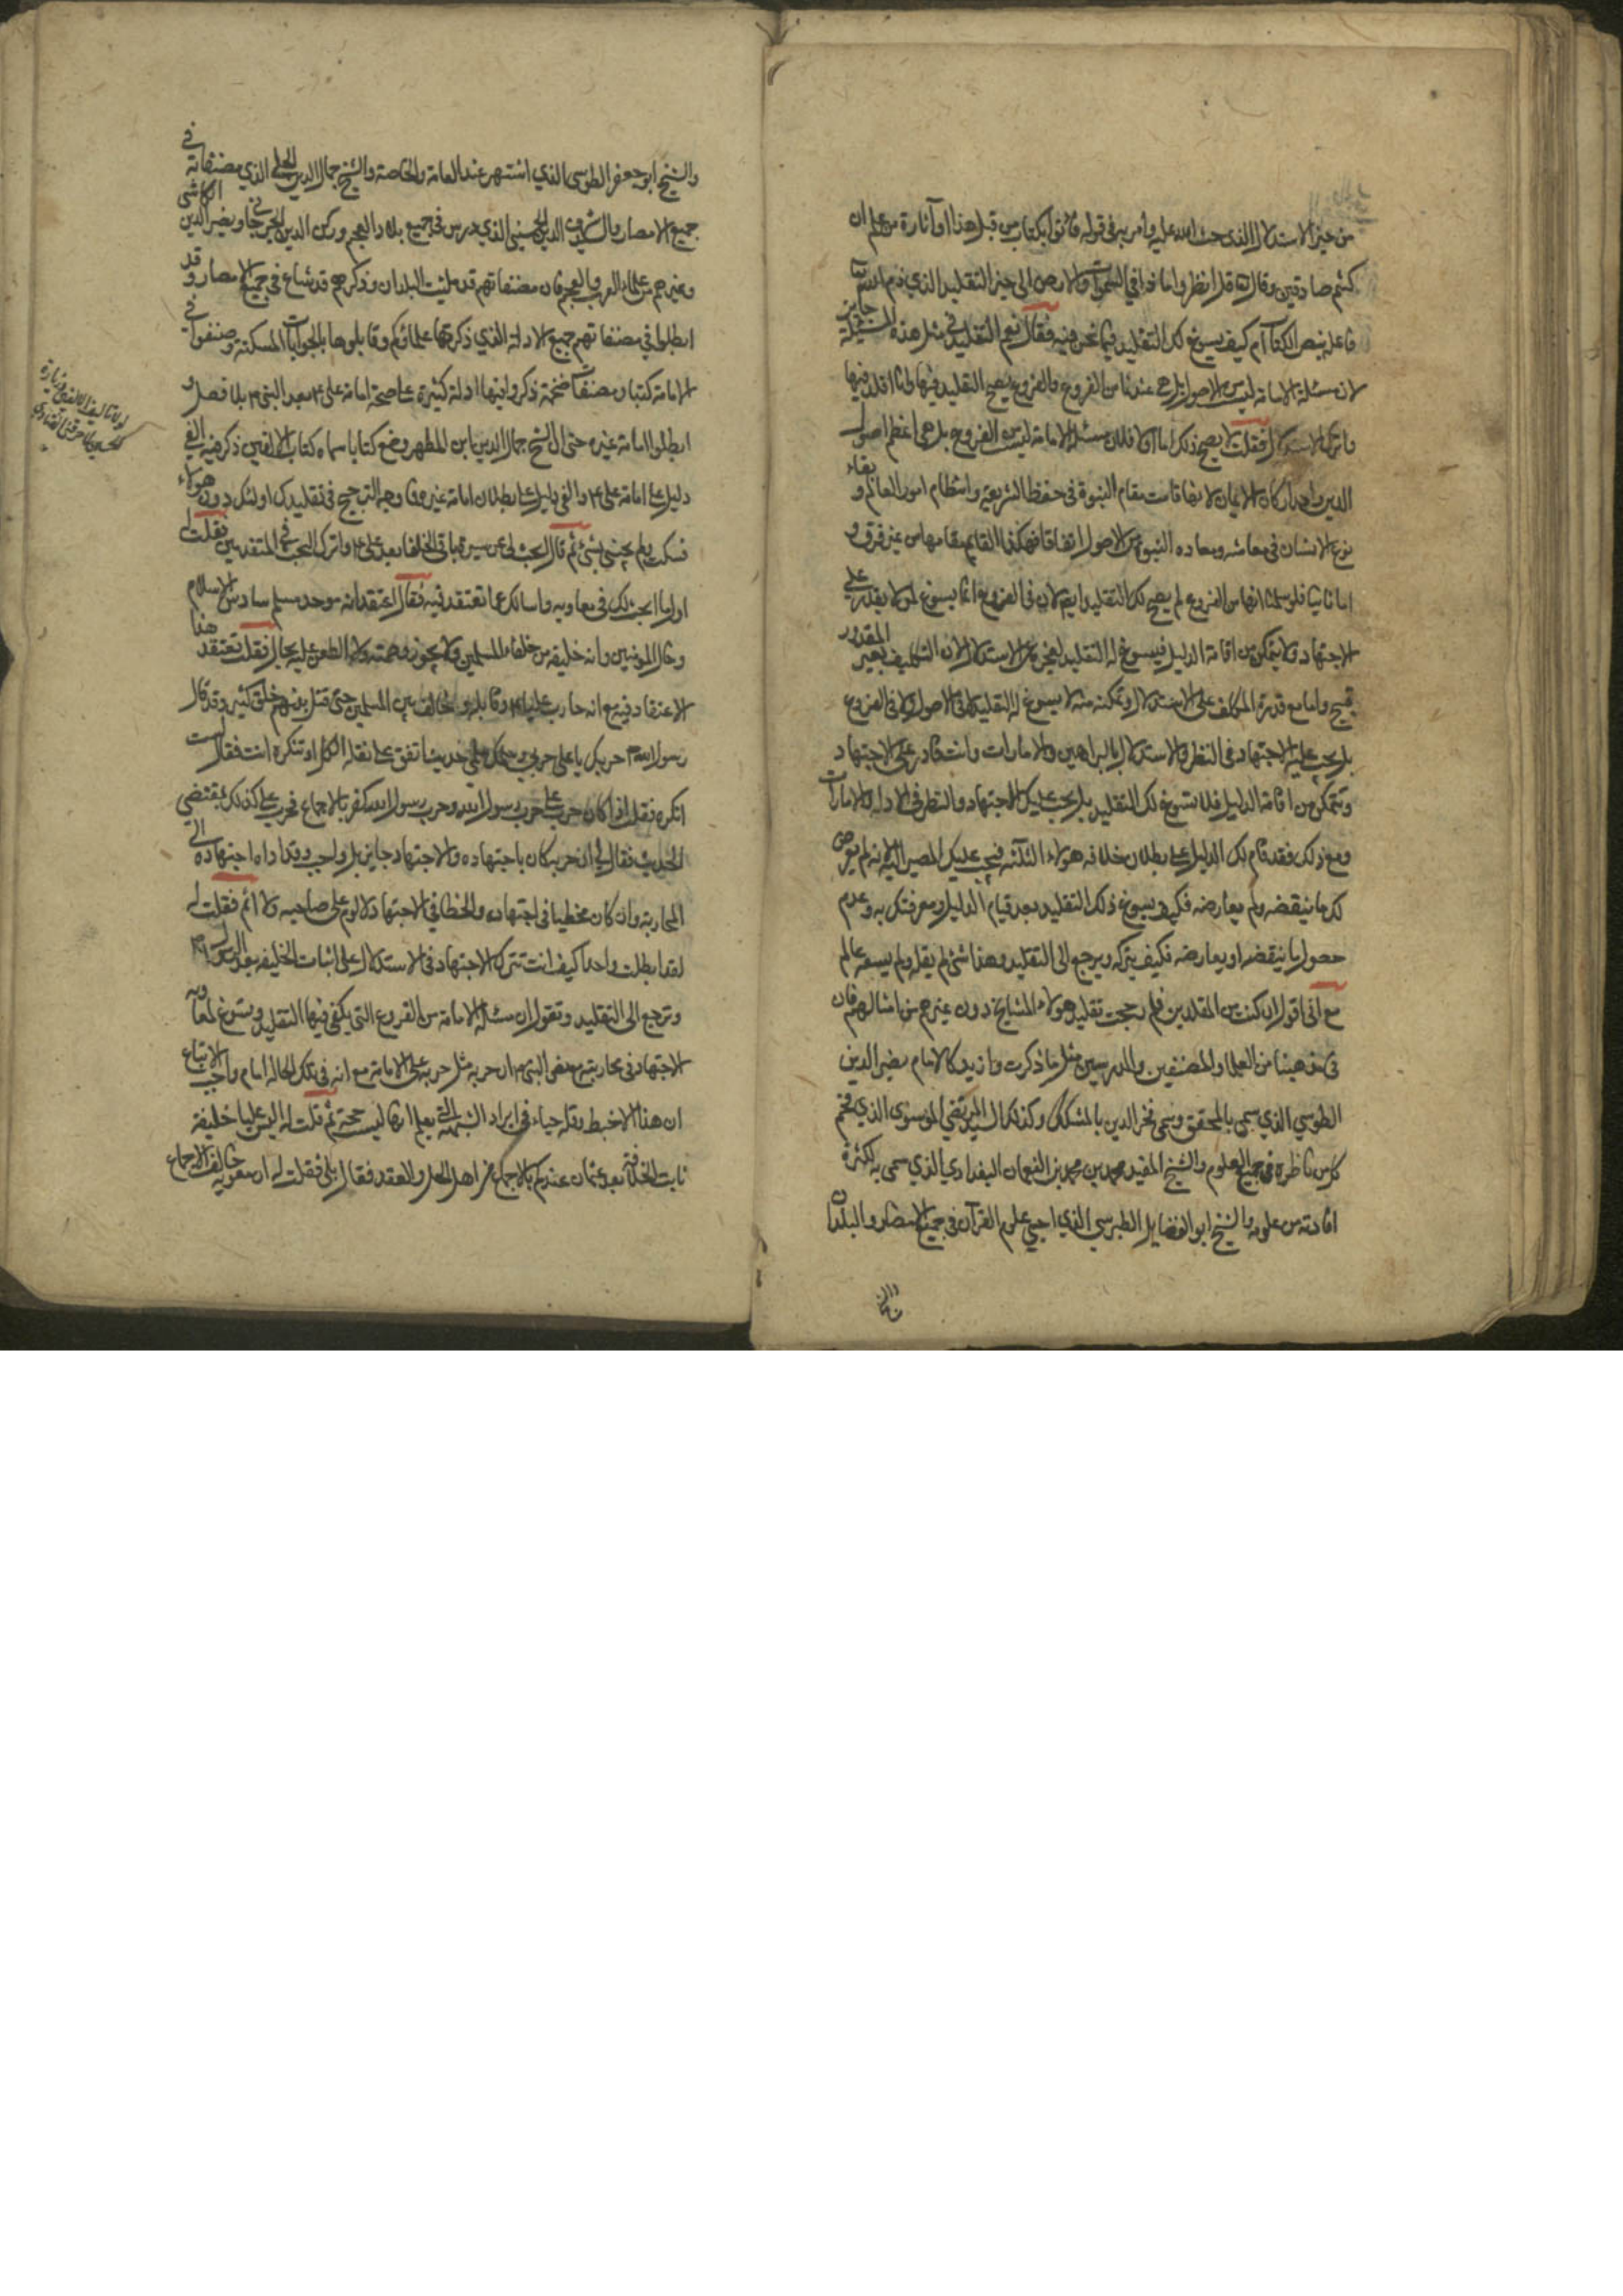 من حيز الاستدلال الذي حث الله عليه وأمر به في قوله فأتوا بكتاب من قبل هذا او آثارة من علم ان
كنتم صادقين وقال قل انظروا ماذا في السموات والارض الى حيز التقليد الذي ذم الله
فاعله بنص الكتاب ام كيف يسوغ لك التقليد فيما نحن فيه فقال نعم التقليد في مثل هذه المسئلة جايز
لان مسئلة الامامة ليس من الاصول بل هي عندنا من الفروع والفروع يصح التقليد فيها وانا اقلد فيها
واترك الاستدلال فقلت لا يصح ذلك اما اولا فلان مسئلة الامامة ليس من الفروع بل هي اعظم اصول
الدين واحد اركان الايمان لانها قامت مقام النبوة في حفظ الشريعة وانتظام امور العالم وبقاء
نوع الانسان في معاشه ومعاده النبوة من الاصول اتفاقا فهكذا القايم مقامها من غير فرق و
اما ثانيا فلو سلمنا انها من الفروع لم يصح لك التقليد ايضا لان في الفروع انما يسوغ لمن لا يقدر على
الاجتهاد ولا يتمكن من اقامة الدليل فيسوغ له التقليد لعجزه عن الاستدلال لان التكليف بغير المقدور
قبيح واما مع قدرة المكلف على الاستدلال وتمكنه منه لا يسوغ له التقليد لا في الاصول ولا في الفروع
بل يجب عليه الاجتهاد في النظر والاستدلال بالبراهين والامارات وانت قادر على الاجتهاد
وتتمكن من اقامة الدليل فلا يسوغ لك التقليد بل يجب عليك الاجتهاد والنظر في الادلة والامارات
ومع ذلك فقد قام لك الدليل على بطلان خلافه هولاء الثلثة فيجب عليك المصير اليه لانه لم يعرض
لك ما ينقضه ولم يعارضه فكيف يسوغ ذلك التقليد بعد قيام الدليل ومعرفتك به وعدم
حصول ما ينقضه او يعارضه فكيف يتركه ويرجع الى التقليد وهذا شئ لم يقله ولم يسعه عالم
مع اني اقول ان كنت من المقلدين فلم رجحت تقليد هولاء المشايخ دون غيرهم من امثالهم فان
في مذهبنا من العلما والمصنفين والمدرسين مثل ما ذكرت وازيد كالامام نصير الدين
الطوسي الذي سمي بالمحقق وسمي فخر الدين بالمشكك وكذلك السيد المرتضي الموسوي الذي فخم
كل من ناظره في جميع العلوم والشيخ المفيد محمد بن محمد بن النعمان البغدادي الذي سمي به لكثرة
افادته من علومه والشيخ ابو الفضايل الطبرسي الذي احيى علوم القرآن في جميع الامصار والبلدان
والشيخ ابو جعفر الطوسي الذي اشتهر عند العامة والخاصة والشيخ جمال الدين الحلي الذي مصنفاته في
جميع الامصار والسيد شرف الدين الحسيني الذي درس في جميع بلاد العجم وركن الدين الجرجاني ونصير الدين الكاشي
وغيرهم من علماء العرب والعجم فان مصنفاتهم قد ملئت البلدان وذكرهم قد شاع في جميع الامصار وقد
ابطلوا في مصنفاتهم جميع الادلة الذي ذكرتها علماؤكم وقابلوها بالجوابات المسكتة وصنفوا في
الامامة كتبا ومصنفات ضخمة ذكروا فيها ادلة كثيرة على صحة امامة علي ع بعد النبي ص بلا فصل و
ابطلوا امامة غيره حتى ان الشيخ جمال الدين ابن المطهر وضع كتابا سماه كتاب الالفين ذكر فيه الفي
دليل على امامة علي ع والفي دليل على ابطال امامة غيره فما وجه الترجيح في تقليدك اولئك دون هولاء
فسكت ولم يجبني بشئ ثم قال ابحث لي عن سيرة باقي الخلفاء بعد علي ع واترك البحث في المتقدمين فقلت له
اولا ما ابحث لك في معاويه واسالك عما تعتقد فيه فقال اعتقد انه موحد مسلم سادس الاسلام
وخال المومنين وانه خليفه من خلفاء المسلمين ولا يجوز وصمته ولا الطعن عليه بحال فقلت تعتقد هذا
الاعتقاد فيه مع انه حارب عليا ع وقابله وخالف بين المسلمين حتى قتل بينهم خلق كثير وقد قال
رسول الله ص حربك يا علي حربي وسلمك سلمي حديثا متفق على نقله الكل او تنكره انت فقال لست
انكره فقلت اذا كان حرب علي حرب رسول الله وحرب رسول الله كفر بالاجماع فحرب علي كذلك بمقتضي
الحديث فقال لي ان حربه كان باجتهاده والاجتهاد جايز بل واجب وقد اداه اجتهاده الى
المحاربة وان كان مخطيا في اجتهاده والخطا في الاجتهاد لا لوم على صاحبه ولا اثم فقلت له
لقد ابطلت واحدا كيف انت تترك الاجتهاد في الاستدلال على اثبات الخليفه بعد الرسول
وترجع الى التقليد وتقول ان مسئلة الامامة من الفروع التي يكفي فيها التقليد وتسوغ لمعاويه
الاجتهاد في محاربته مع نص النبي ص ان حربه مثل حربه على الامامة مع انه في تلك الحالة امام واجب الاتباع
ان هذا الا خبط وقلة حياء في ايراد الشبهة التي يعلم انها ليست حجة ثم قلت له اليس عليا خليفة
ثابت الخلافة بعد عثمان عندكم بالاجماع من اهل الحل والعقد فقال بلى فقلت له ان معويه خالف الاجماع